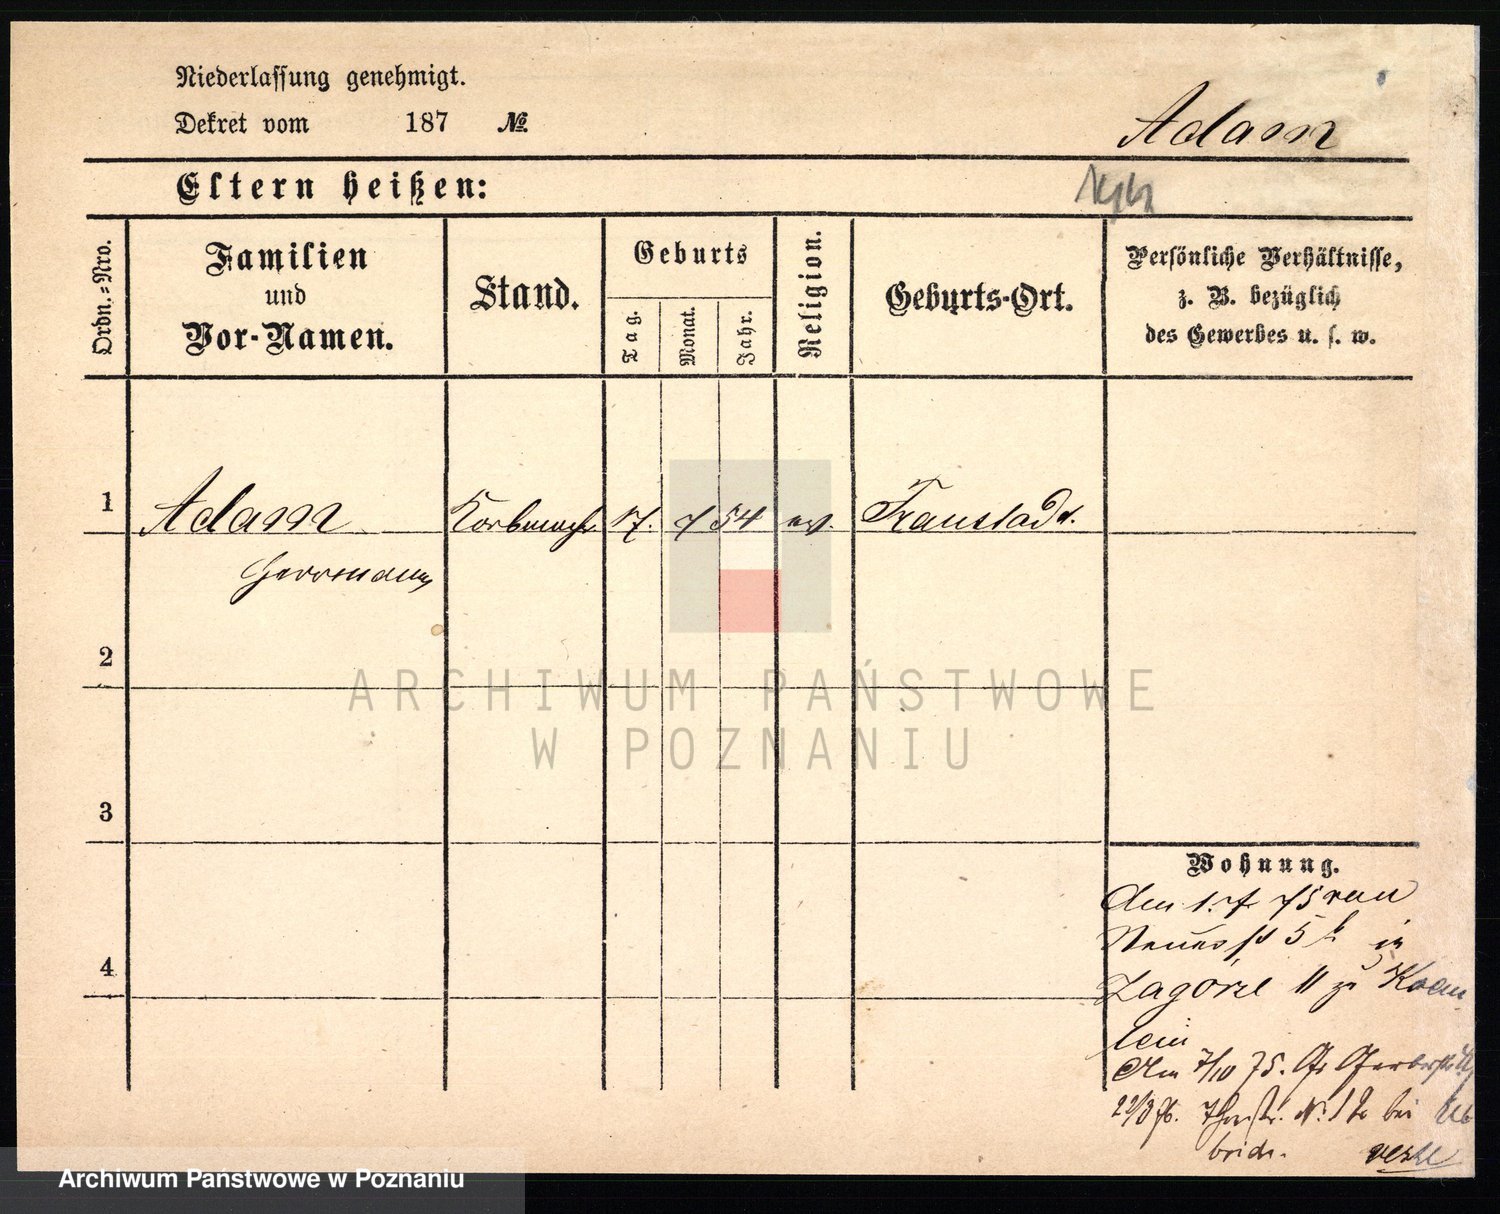 Niederlassung genehmigt.
Dekret vom 187 №
Adam
Eltern heißen:
Ordn.-Nro.
Familien
und
Vor-Namen.
Stand.
Geburts
Tag.
Monat.
Jahr.
Religion.
Geburts-Ort.
Persönliche Verhältnisse,
z. B. bezüglich
des Gewerbes u. s. w.
1 Adam Korbmacher 17. 7 54 ev. Fraustadt.
Herrmann
2
3
4
Wohnung.
Am 1. 7. 75 von
5 in
Zagorze 11 zu
lein
Am 7/10 75. Gr Gerberstr
22/3 76. № 12 bei
ARCHIWUM PAŃSTWOWE
W POZNANIU
Archiwum Państwowe w Poznaniu